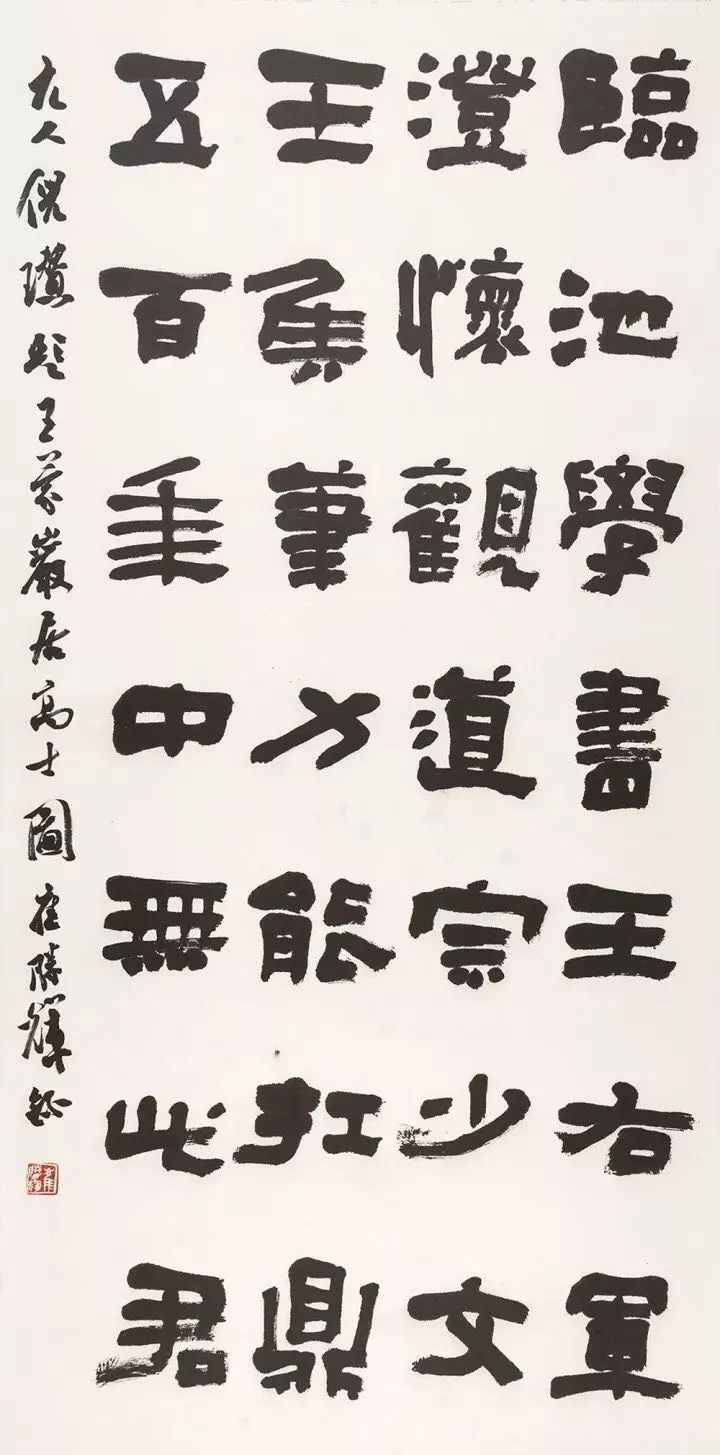 臨池學書王右軍
澄懷觀道宗少文
王侯筆力能扛鼎
五百年中無此君
元人倪瓚題王蒙巖居高士圖崔勝輝錄